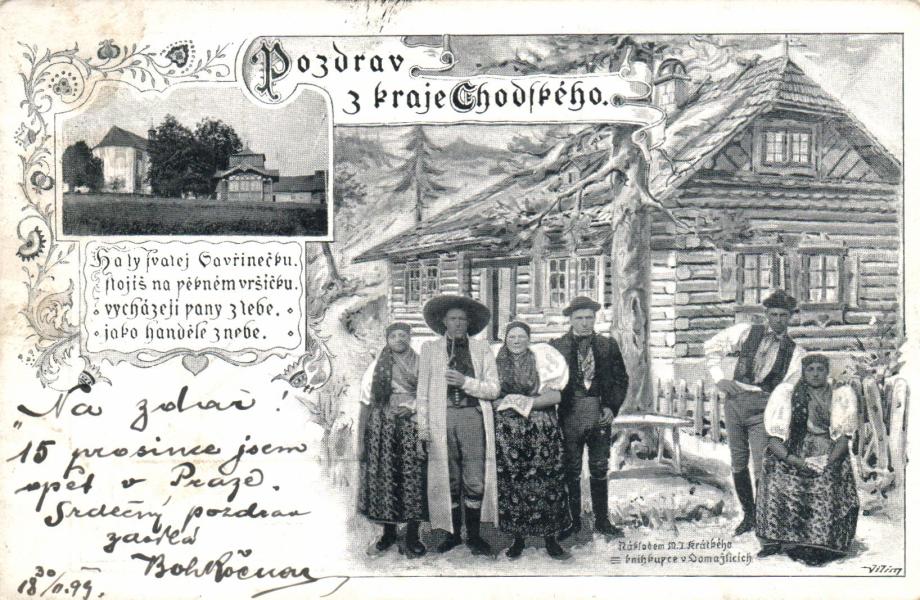 Pozdrav
z kraje Chodského.
Ha ty svatej Vavřinečku,
stojíš na pěkném vršíčku,
vycházejí pany z tebe,
jako handěle z nebe.
„Na zdar!
15 prosince jsem
opět v Praze.
Srdečný pozdrav
zasílá
18 30/11. 99.
Nákladem M. J. Krátkého
knihkupce v Domažlicích
Vilím